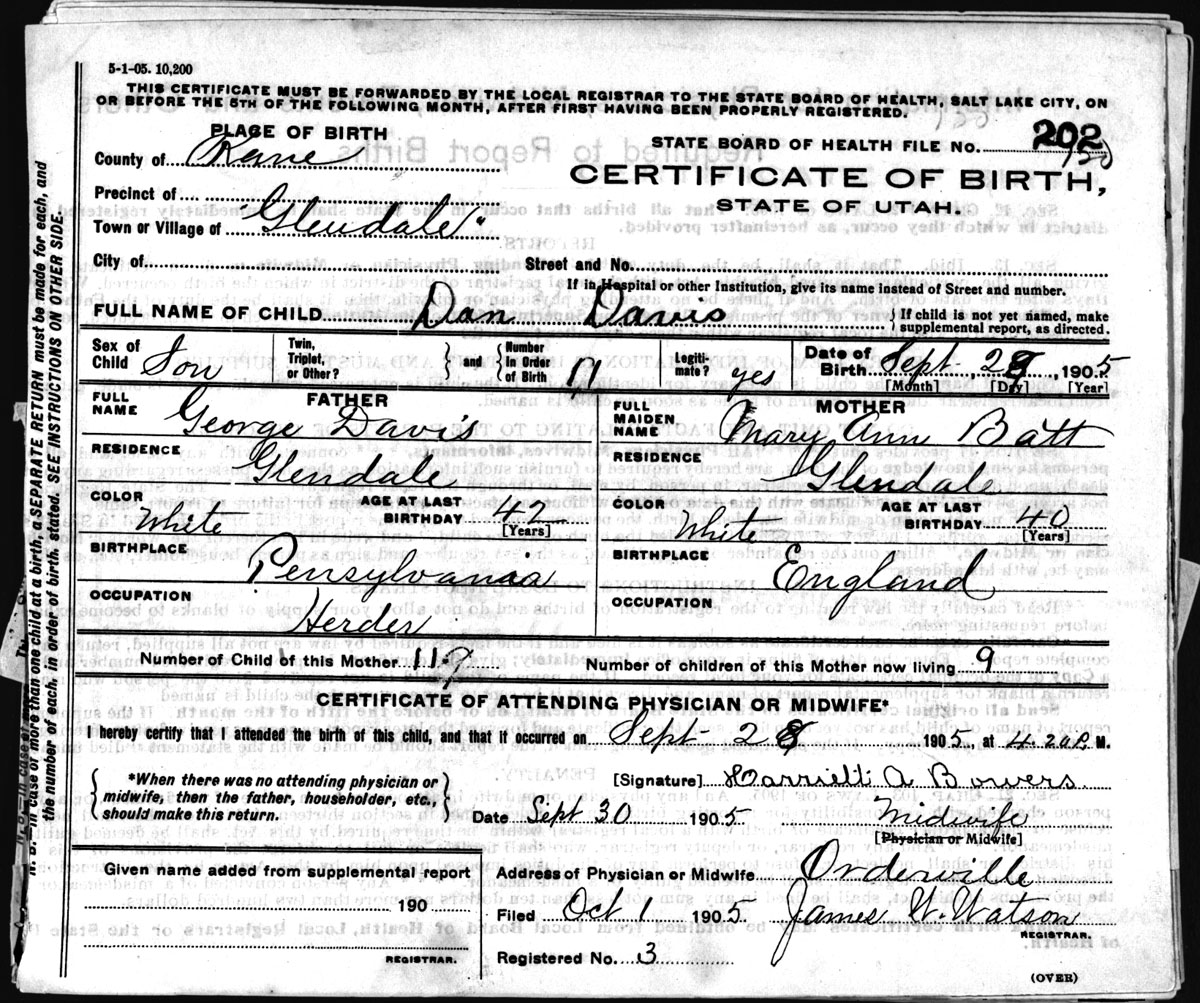 5-1-05. 10,200
THIS CERTIFICATE MUST BE FORWARDED BY THE LOCAL REGISTRAR TO THE STATE BOARD OF HEALTH, SALT LAKE CITY, ON
OR BEFORE THE 5TH OF THE FOLLOWING MONTH, AFTER FIRST HAVING BEEN PROPERLY REGISTERED.
PLACE OF BIRTH
County of Kane
Precinct of
Town or Village of "Glendale"
City of
STATE BOARD OF HEALTH FILE No. 202
150
CERTIFICATE OF BIRTH,
STATE OF UTAH.
Street and No.
If in Hospital or other Institution, give its name instead of Street and number.
FULL NAME OF CHILD Dan Davis
If child is not yet named, make
supplemental report, as directed.
Sex of Child Son
Twin, Triplet, or Other? and Number in Order of Birth 11
Legiti-mate? yes
Date of Birth Sept 28, 1905
[Month] [Day] [Year]
FATHER
FULL NAME George Davis
RESIDENCE Glendale
COLOR White
AGE AT LAST BIRTHDAY 42
[Years]
BIRTHPLACE Pensylvania
OCCUPATION Herder
MOTHER
FULL MAIDEN NAME Mary Ann Batt
RESIDENCE Glendale
COLOR White
AGE AT LAST BIRTHDAY 40
[Years]
BIRTHPLACE England
OCCUPATION
Number of Child of this Mother 11-9 Number of children of this Mother now living 9
CERTIFICATE OF ATTENDING PHYSICIAN OR MIDWIFE*
I hereby certify that I attended the birth of this child, and that it occurred on Sept 28 1905, at 4.20 P. M.
*When there was no attending physician or
midwife, then the father, householder, etc.,
should make this return.
[Signature] Harriett A Bowers
Date Sept 30 1905. Midwife
[Physician or Midwife]
Given name added from supplemental report
190
REGISTRAR.
Address of Physician or Midwife Orderville
Filed Oct 1 1905. James W. Watson
REGISTRAR.
Registered No. 3
(OVER)
N. B. In case of more than one child at a birth, a SEPARATE RETURN must be made for each, and
the number of each, in order of birth, stated. SEE INSTRUCTIONS ON OTHER SIDE.